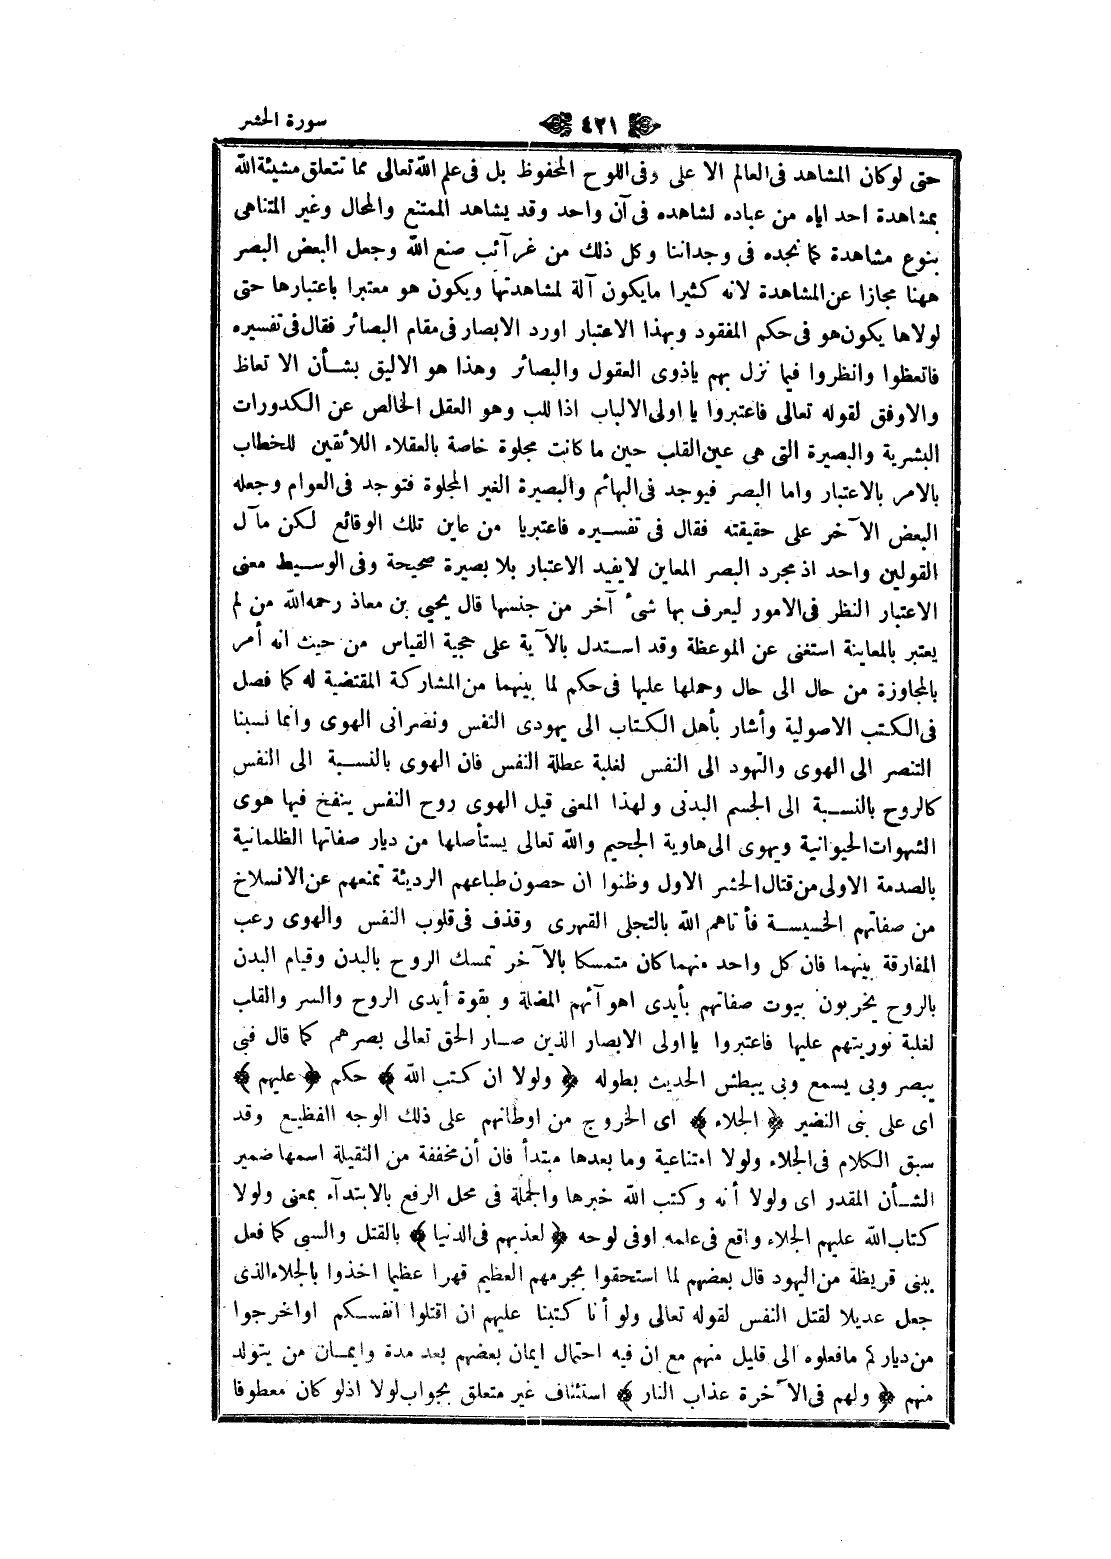 سورة الحشر ﴿ ٤٢١ ﴾
حتى لوكان المشاهد فى العالم الاعلى وفى اللوح المحفوظ بل فى علم الله تعالى مما تتعلق مشيئة الله
بمشاهدة احد اياه من عباده لشاهده فى آن واحد وقد يشاهد الممتنع والمحال وغير المتناهى
بنوع مشاهدة كما نجده فى وجداننا وكل ذلك من غرآئب صنع الله وجعل البعض البصر
ههنا مجازا عن المشاهدة لانه كثيرا مايكون آلة لمشاهدتها ويكون هو معتبرا باعتبارها حتى
لولاها يكون هو فى حكم المفقود وبهذا الاعتبار اورد الابصار فى مقام البصائر فقال فى تفسيره
فاتعظوا وانظروا فيما نزل بهم ياذوى العقول والبصائر وهذا هو الاليق بشأن الاتعاظ
والاوفق لقوله تعالى فاعتبروا يا اولى الالباب اذا للب وهو العقل الخالص عن الكدورات
البشرية والبصيرة التى هى عين القلب حين ما كانت مجلوة خاصة بالعقلاء اللائقين للخطاب
بالامر بالاعتبار واما البصر فيوجد فى البهائم والبصيرة الغير المجلوة فتوجد فى العوام وجعله
البعض الآخر على حقيقته فقال فى تفسيره فاعتبريا من عاين تلك الوقائع لكن مآل
القولين واحد اذ مجرد البصر المعاين لايفيد الاعتبار بلا بصيرة صحيحة وفى الوسيط معنى
الاعتبار النظر فى الامور ليعرف بها شئ آخر من جنسها قال يحيى بن معاذ رحمه الله من لم
يعتبر بالمعاينة استغنى عن الموعظة وقد استدل بالآية على حجية القياس من حيث انه أمر
بالمجاوزة من حال الى حال وحملها عليها فى حكم لما بينهما من المشاركة المقتضية له كما فصل
فى الكتب الاصولية وأشار بأهل الكتاب الى يهودى النفس ونصرانى الهوى وانما نسبنا
التنصر الى الهوى والتهود الى النفس لغلبة عطلة النفس فان الهوى بالنسبة الى النفس
كالروح بالنسبة الى الجسم البدنى ولهذا المعنى قيل الهوى روح النفس ينفخ فيها هوى
الشهوات الحيوانية ويهوى الى هاوية الجحيم والله تعالى يستأصلها من ديار صفاتها الظلمانية
بالصدمة الاولى من قتال الحشر الاول وظنوا ان حصون طباعهم الرديئة تمنعهم عن الانسلاخ
من صفاتهم الخسيسة فأتاهم الله بالتجلى القهرى وقذف فى قلوب النفس والهوى رعب
المفارقة بينهما فان كل واحد منهما كان متمسكا بالآخر تمسك الروح بالبدن وقيام البدن
بالروح يخربون بيوت صفاتهم بأيدى اهوآئهم المضلة وبقوة أيدى الروح والسر والقلب
لغلبة نوريتهم عليها فاعتبروا يا اولى الابصار الذين صار الحق تعالى بصرهم كما قال فبى
يبصر وبى يسمع وبى يبطش الحديث بطوله ﴿ ولولا ان كتب الله ﴾ حكم ﴿ عليهم ﴾
اى على بنى النضير ﴿ الجلاء ﴾ اى الخروج من اوطانهم على ذلك الوجه الفظيع وقد
سبق الكلام فى الجلاء ولولا امتناعية وما بعدها مبتدأ فان أن مخففة من الثقيلة اسمها ضمير
الشأن المقدر اى ولولا أنه وكتب الله خبرها والجملة فى محل الرفع بالابتدآء بمعنى ولولا
كتاب الله عليهم الجلاء واقع فى علمه اوفى لوحه ﴿ لعذبهم فى الدنيا ﴾ بالقتل والسبى كما فعل
ببنى قريظة من اليهود قال بعضهم لما استحقوا بجرمهم العظيم قهرا عظيما اخذوا بالجلاء الذى
جعل عديلا لقتل النفس لقوله تعالى ولو أنا كتبنا عليهم ان اقتلوا انفسكم اواخرجوا
من دياركم مافعلوه الى قليل منهم مع ان فيه احتمال ايمان بعضهم بعد مدة وايمان من يتولد
منهم ﴿ ولهم فى الآخرة عذاب النار ﴾ استئناف غير متعلق بجواب لولا اذلو كان معطوفا